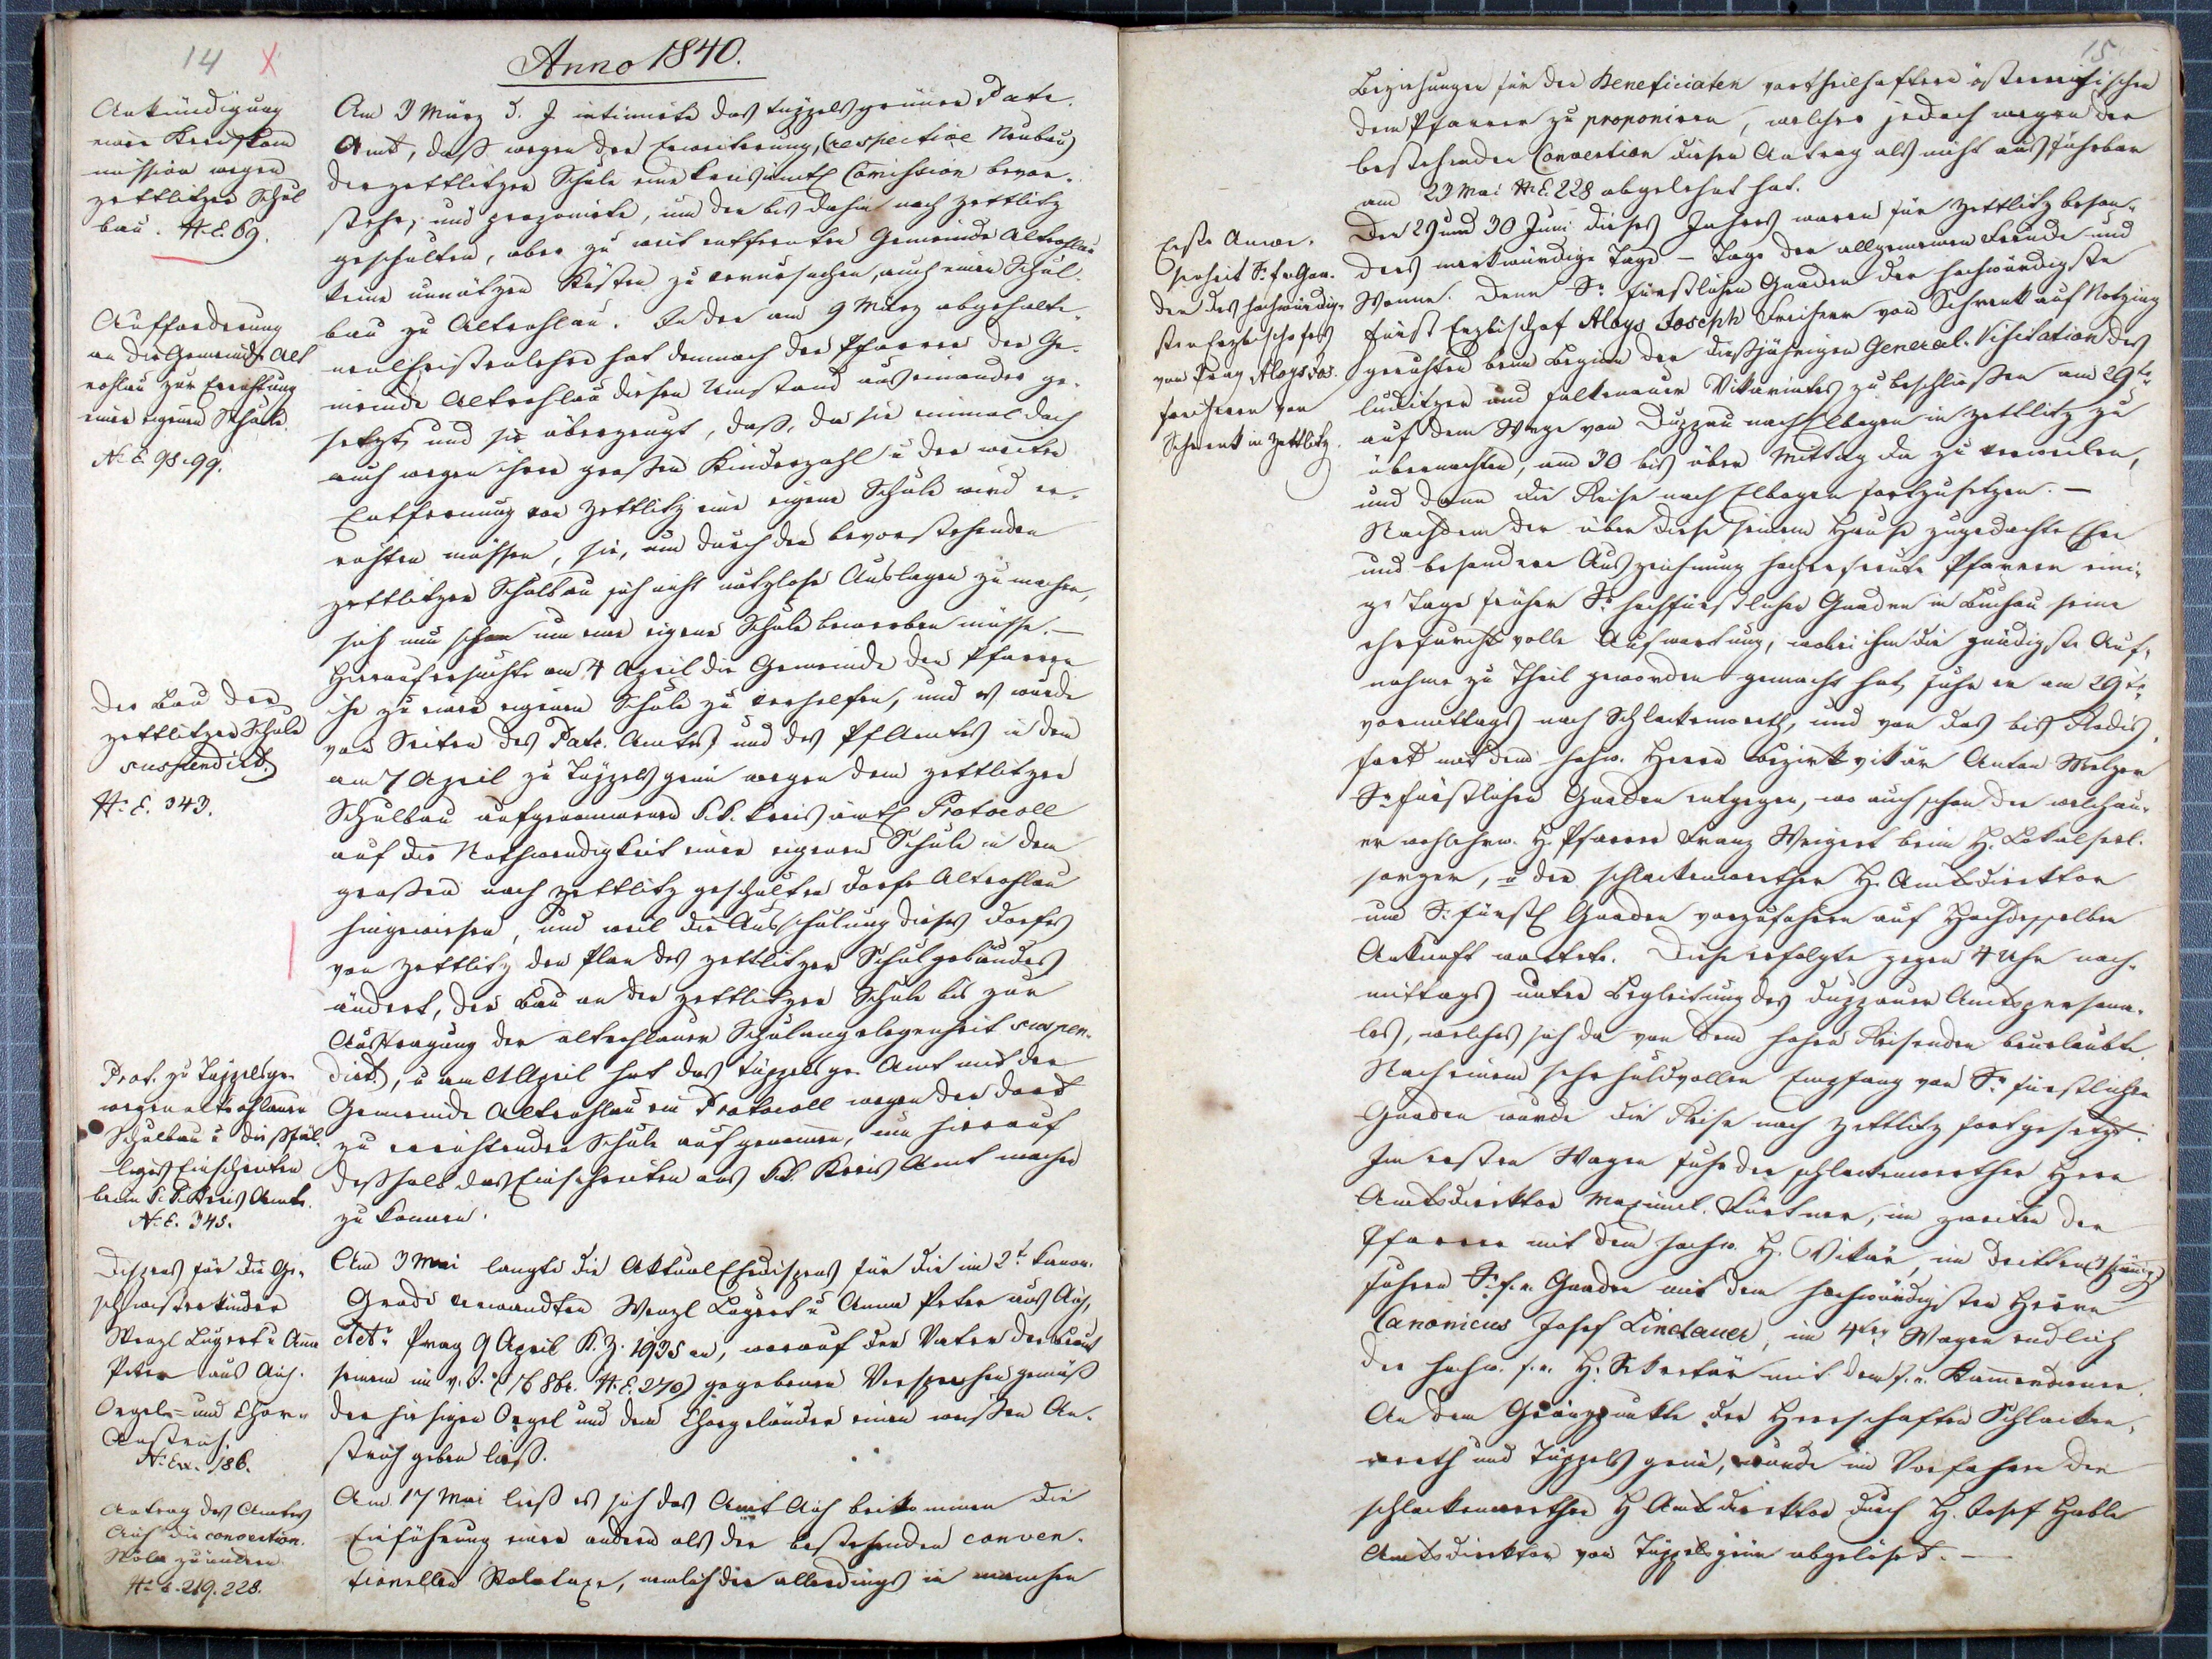 14 X
Anno 1840.
Ankündigung
einer Kreiskom
mission wegen
zettlitzer Schul
bau. N. E. 69.
Aufforderung
an die Gemeinde Alt
rohlau zur Errichtung
einer eigenen Schule.
N. E. 98. 99.
Der Bau der
zettlitzer Schule
suspendirt.
N. E. 343.
Prot. zu Tüppelsgr.
wegen altrohlauer
Schulbau u dießfäl
liges Einschreiten
beim k. k. Kreis Amte.
N. E. 345.
Dispens für die Ge¬
schwisterkinder
Wenzl Lugert u Anna
Peter aus Aich.
Orgel- und Chor¬
Anstrich.
N. Ex. 186.
Antrag des Amtes
Aich die convention.
Stola zu ändern
N. E. 219. 228.
Am 3 März d. J. intimirte das tüppelsgrüner Patr.
Amt, daß wegen der Erweiterung, (respective Neubau)
der zettlitzer Schule eine kreisämtl Comission bevor¬
stehe, und proponirte, um der bis dahin nach Zettlitz
geschulten, aber zu weit entfernten Gemeinde Altrohlau
keine unnützen Kösten zu verursachen, auch einen Schul¬
bau zu Altrohlau. In der am 9 März abgehalte¬
nen Christenlehre hat demnach der Pfarrer der Ge¬
meinde Altrohlau diesen Umstand auseinander ge¬
setzt und sie überzeugt, daß, da sie einmal doch
auch wegen ihrer großen Kinderzahl u der weiten
Entfernung von Zettlitz eine eigene Schule wird er¬
richten müssen, sie, um durch den bevorstehenden
zettlitzer Schulbau sich nicht nutzlose Auslagen zu machen,
sich nun schon um eine eigene Schule bewerben müsse. —
Hierauf ersuchte am 4 April die Gemeinde den Pfarrer
ihr zu einer eigenen Schule zu verhelfen, und es wurde
von Seiten des Patr. Amtes und des PfAmtes in dem
am 7 April zu Tüppelsgrün wegen dem zettlitzer
Schulbau aufgenommenen k. k. kreisämtl Protocoll
auf die Nothwendigkeit einer eigenen Schule in dem
großen nach Zettlitz geschulten Dorfe Altrohlau
hingewiesen, und weil die Ausschulung dieses Dorfes
von Zettlitz den Plan des zettlitzer Schulgebäudes
ändert, der Bau an der zettlitzer Schule bis zur
Austragung der altrohlauer Schulangelegenheit suspen¬
dirt, u am April hat das tüppelsgr. Amt mit der
Gemeinde Altrohlau ein Protocoll wegen der dort
zu errichtenden Schule aufgenommen, um hierauf
deßhalb das Einschreiten ans k. k. Kreis Amt machen
zu können.
Am 3 Mai langte die Aktual Ehedispens für die im 2t kanon.
Grade verwandten Wenzl Lugert u Anna Peter aus Aich,
dtto Prag 9 April K. Z. 1935 an, worauf der Vater der Braut
seinem im v. J. (16 8br. N. E. 270) gegebenen Versprechen gemäß
der hiesigen Orgel und dem Chorgeländer einen weißen An¬
strich geben ließ.
Am 17 Mai ließ es sich das Amt Aich beikommen die
Einführung einer andern als der bestehenden conven¬
tionellen Stolataxe, nemlich die allerdings in manchen
15
Erste Anwe¬
senheit Sr. f. e. Gna¬
den des hochwürdig¬
sten Erzbischofes
von Prag Aloys Jos.
Freiherrn von
Schrenk in Zettlitz.
Beziehungen für den Beneficiaten vortheilhaftere österreichischen
dem Pfarrer zu proponiren, welcher jedoch wegen der
bestehenden Convention diesen Antrag als nicht ausführbar
am 23 Mai N. E. 228 abgelehnt hat.
Der 29 und 30 Juni dieses Jahres waren für Zettlitz beson¬
ders merkwürdige Tage — Tage der allgemeinen Freude und
Wonne. Denn Sr. fürstlichen Gnaden der hochwürdigste
Fürst Erzbischof Aloys Joseph Freiherr von Schrenk auf Notzing
geruhten beim Beginn der dießjährigen General-Visitation des
luditzer und falkenauer Vikariates zu beschließen am 29te
auf dem Wege von Duppau nach Elbogen in Zettlitz zu
übernachten, am 30 bis über Mittag da zu verweilen,
und dann die Reise nach Elbogen fortzusetzen. —
Nachdem der über diese seinem Hause zugedachte Ehre
und besondere Auszeichnung hocherfreute Pfarrer eini¬
ge Tage früher Sr. hochfürstlichen Gnaden in Buchau seine
ehrfurchtsvolle Aufwartung, wobei ihm die gnädigste Auf¬
nahme zu Theil geworden gemacht hat, fuhr er am 29te
vormittags nach Schlackenwerth, und von da bis Rodis¬
fort mit dem hochw. Herrn Bezirksvikär Anton Melzer
Sr fürstlichen Gnaden entgegen, wo auch schon der welchau¬
er wohlehrw. H. Pfarrer Franz Weigert beim H. Lokalseel¬
sorger, u der schlackenwerther H. Amtsdirektor
um Sr. fürstl Gnaden vorzufahren auf Hochdesselben
Ankunft wartete. Diese erfolgte gegen 4 Uhr nach¬
mittags unter Begleitung des duppauer Amtspersona¬
les, welches sich da von dem hohen Reisenden beurlaubte.
Nach einem sehr huldvollen Empfang von Sr fürstlichen
Gnaden wurde die Reise nach Zettlitz fortgesetzt.
Im ersten Wagen fuhr der schlackenwerther Herr
Amtsdirektor Maximil. Fürtner, im zweiten der
Pfarrer mit dem hochw. H. Vikär, im dritten (4spännig)
fuhren Sr. f. e. Gnaden mit dem hochwürdigsten Herrn
Canonicus Josef Lindauer, im 4ten Wagen endlich
der hochw. f. e. H. Sekretär mit dem f. e. Kammerdiener.
An dem Gränzpunkte der Herrschaften Schlacken¬
werth und Tüppelsgrün, wurde im Vorfahren der
schlackenwerther H Amtsdirektor durch H. Josef Hable
Amtsdirektor von Tüppelsgrün abgelöset. —